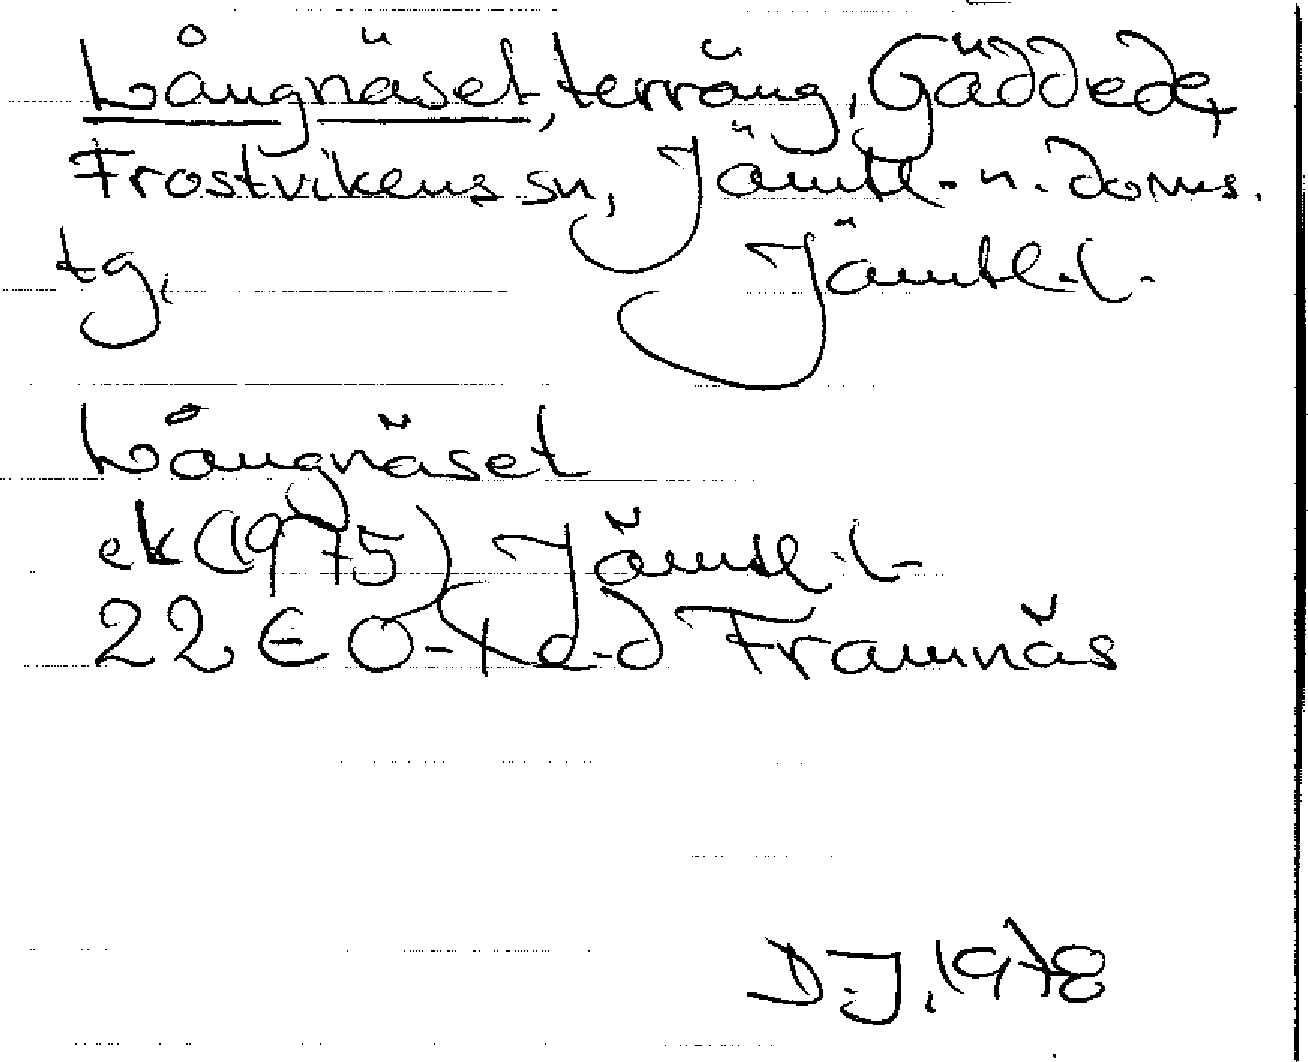 Långnäset, terräng, Gäddede,
Frostvikens sn, Jämtl. n. doms.
tg, Jämtl. l.
Långnäset
ek (1975) Jämtl. l.
22 E 0-1 c-d Framnäs
D.J, 1978